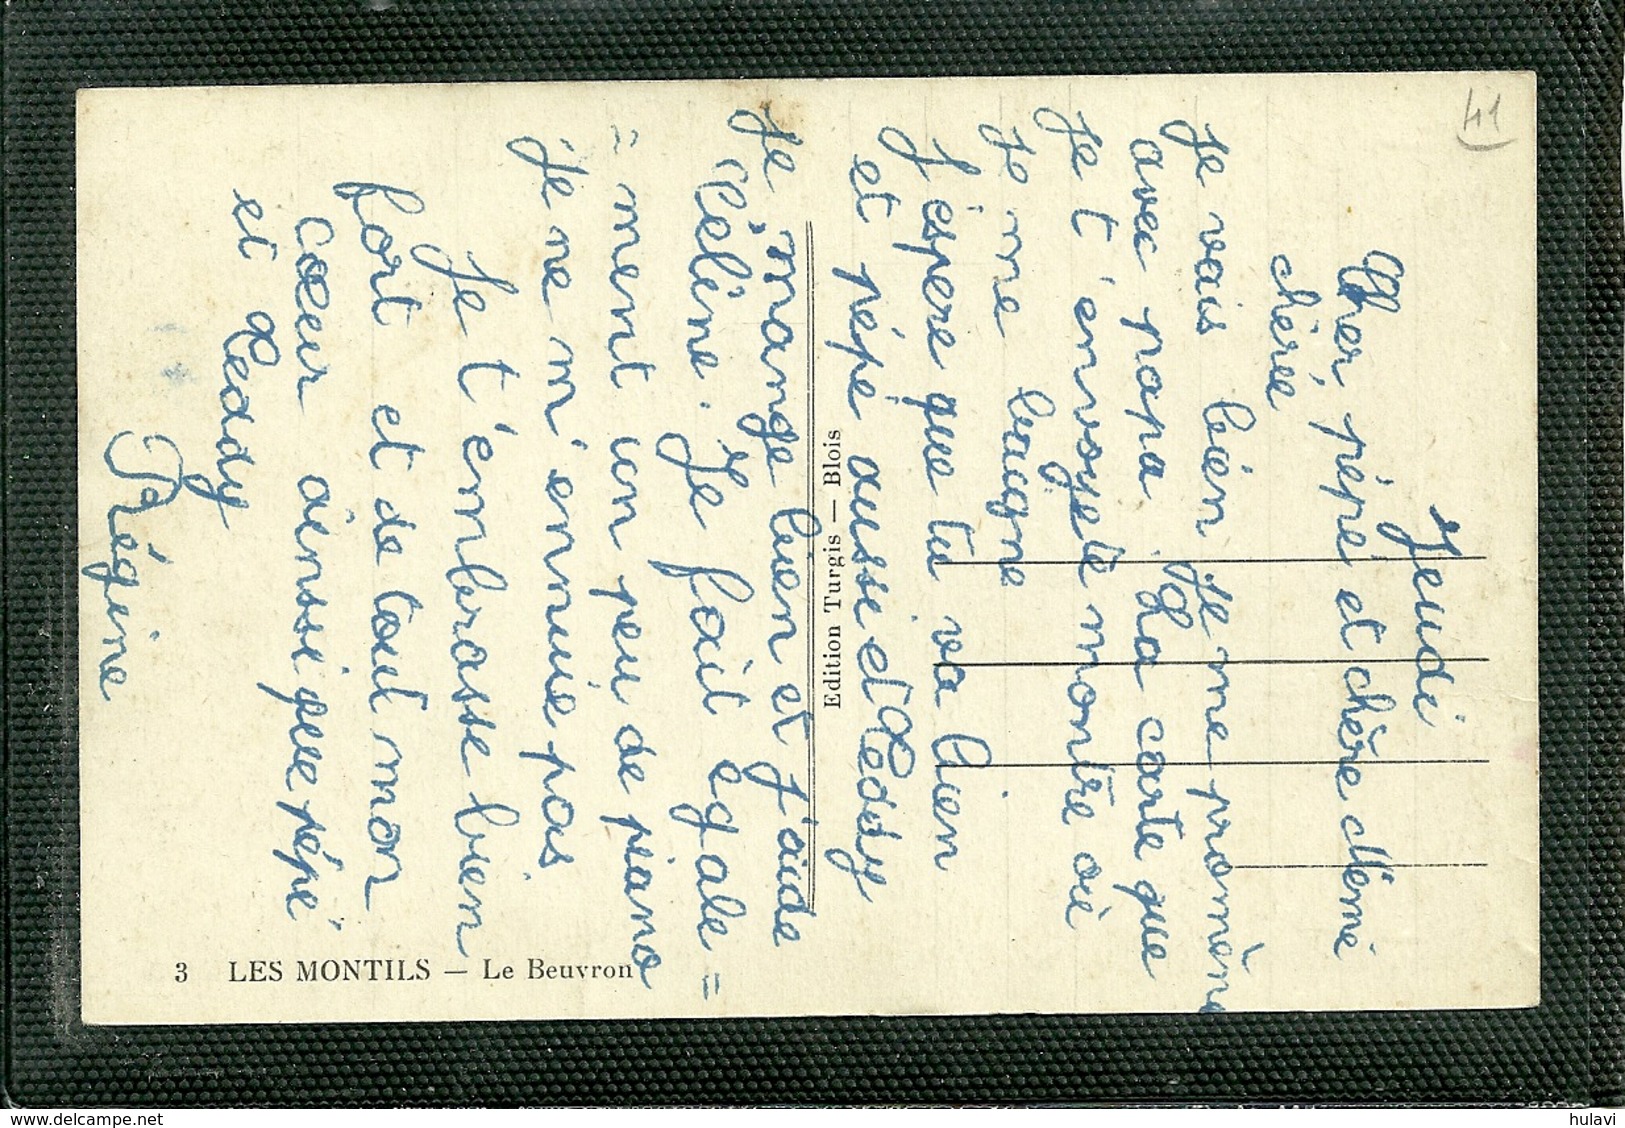 Jeudi
Cher, pépé et chère Mémé
chérée
Je vais bien Je me promène
avec papa. La carte que
Je t'envoye te montre où
je me baigne
J'éspère que tu va bien
et pépé aussi et Teddy
Je mange bien et j'aide
Céline. Je fait égale=
=ment un peu de piano
je ne m'ennuie pas
Je t'embrasse bien
fort et de tout mon
cœur ainssi que pépé
et Teddy
Régine
Edition Turgis — Blois
3 LES MONTILS — Le Beuvron
41
delcampe.net
hulavi